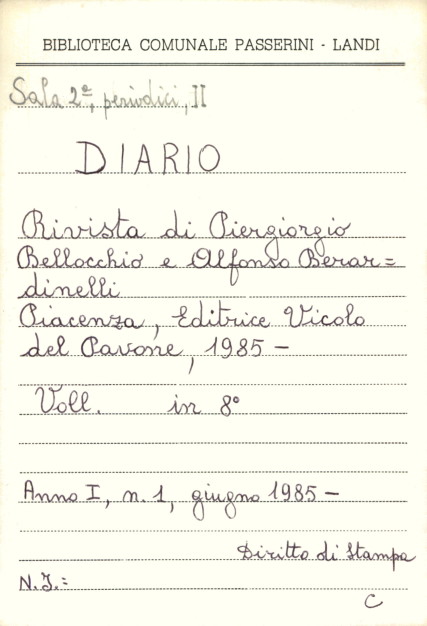 BIBLIOTECA COMUNALE PASSERINI - LANDI
Sala 2ª, periodici, II
DIARIO
Rivista di Piergiorgio
Bellocchio e Alfonso Berar=
dinelli
Piacenza, Editrice Vicolo
del Pavone, 1985 -
Voll. in 8°
Anno I, n. 1, giugno 1985 -
Diritto di Stampa
N.I.:
C